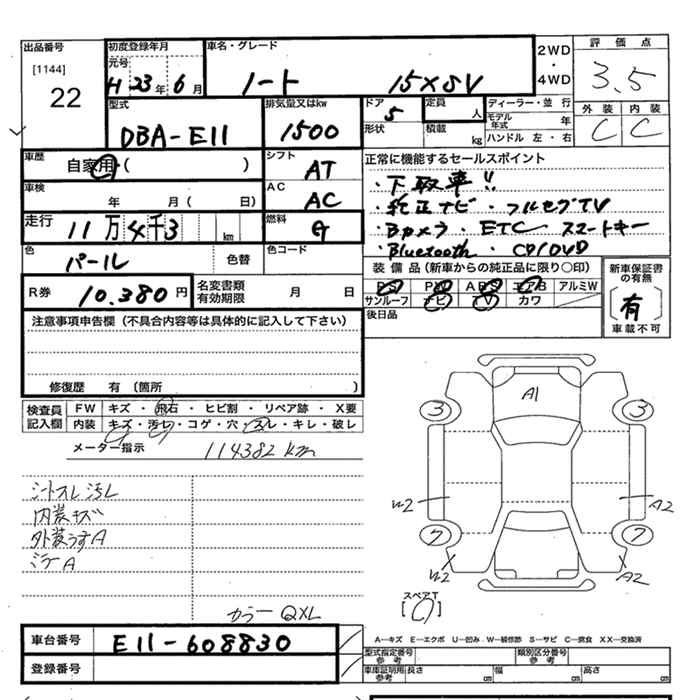 出品番号
[1144]
22
初度登録年月
元号
H 23 年 6 月
車名・グレード
ノート 15X SV
2WD
・
4WD
評価点
3.5
外装 内装
C C
型式
DBA-E11
排気量又はkw
1500
ドア
5
定員
人
形状
積載
kg
ディーラー・並行
モデル年式
年
ハンドル 左・右
車歴
自家用 ( )
シフト
AT
車検
年 月 ( 日)
AC
AC
走行
11万4千3
km
燃料
G
色
パール
色替
色コード
R券
10.380円
名変書類
有効期限
月 日
正常に機能するセールスポイント
・下取車!!
・純正ナビ・フルセグTV
・Bカメラ・ETC スマートキー
・Bluetooth・CD/DVD
装備品(新車からの純正品に限り〇印)
PS PW ABS エアB アルミW
サンルーフ ナビ TV カワ
後日品
新車保証書
の有無
[有]
車載不可
注意事項申告欄(不具合内容等は具体的に記入して下さい)
修復歴 有 (箇所 )
検査員
記入欄
FW キズ・飛石・ヒビ割・リペア跡・X要
内装 キズ・汚レ・コゲ・穴・スレ・キレ・破レ
メーター指示 114382 km
シートスレ汚レ
内装キズ
外装うすA
ミラーA
カラーQXL
A1
3 3
W2 A2
7 7
W2 A2
スペアT
A—キズ E—エクボ U—凹み W—補修跡 S—サビ C—腐食 XX—交換済
車台番号
E11-608830
登録番号
型式指定番号
参考
類別区分番号
参考
車庫証明用
参考
長さ cm 幅 cm 高さ cm